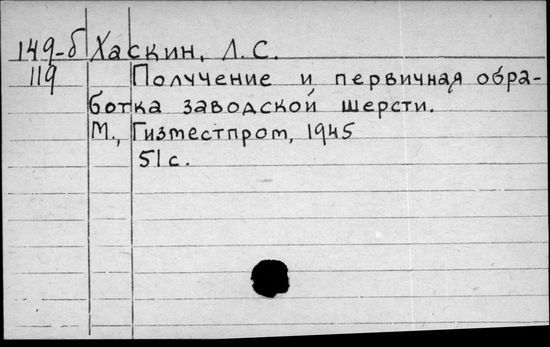 149-б Хаскин, Л. С.
119 Получение и первичная обра-
ботка заводской шерсти.
М., Гизместпром, 1945
51 с.